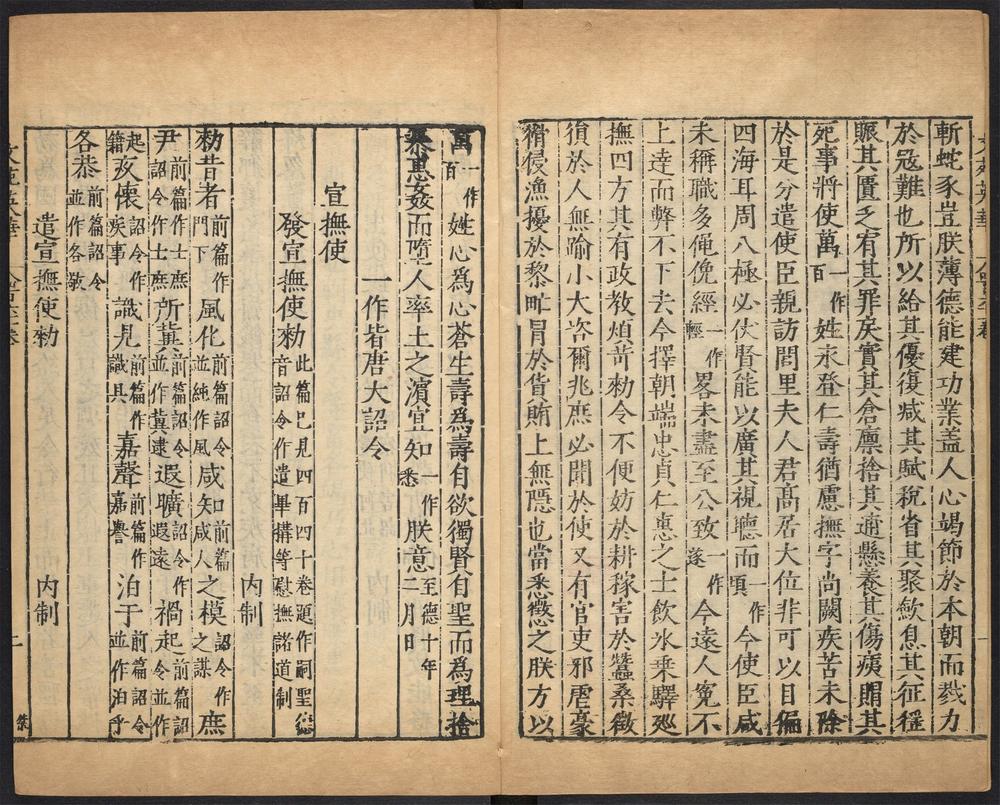 斬蛇豕豈朕薄德能建功業盖人心竭節於本朝而戮力
於寇難也所以給其優復減其賦稅省其聚歛息其征徭
賑其匱乏宥其罪戾實其倉廪捨其逋懸養其傷痍賵其
死事將使萬一作百姓永登仁壽猶慮撫字尚闕疾苦未除
於是分遣使臣親訪閭里夫人君髙居大位非可以目徧
四海耳周八極必伏賢能以廣其視聽而一作頃今使臣咸
未稱職多僶俛經一作輕畧未盡至公致一作遂今遠人寃不
上達而弊不下去今擇朝端忠貞仁惠之士飲氷乗驛廵
撫四方其有政教煩苛勑令不便妨於耕稼害於蠶桑徵
湏於人無踰小大咨爾兆庶必聞於使又有官吏邪虐豪
猾侵漁擾於黎甿冒於貨賄上無隠也當悉懲之朕方以
萬一作百姓心爲心蒼生壽爲壽自欲獨賢自聖而爲理捨
恭甚姦而墮人率土之濱宜知一作悉朕意至德十年二月日
一作皆唐大詔令
宣撫使
發宣撫使勑此篇已見四百四十卷題作嗣聖㧾音詔令作遣畢搆等慰撫諸道制
内制
勑昔者前篇作門下風化前篇詔令並純作風咸知前篇咸人之模詔令作之謀庶
尹前篇作士庶詔令作士庶所冀前篇詔令並作冀逮遐曠詔令作遐遠禍起前篇詔令並作
起籍孜懐詔令作疾事識見前篇作識具嘉聲前篇作嘉譽泊于前篇詔令並作泊乎
各恭前篇詔令並作各敬
遣宣撫使勑
内制